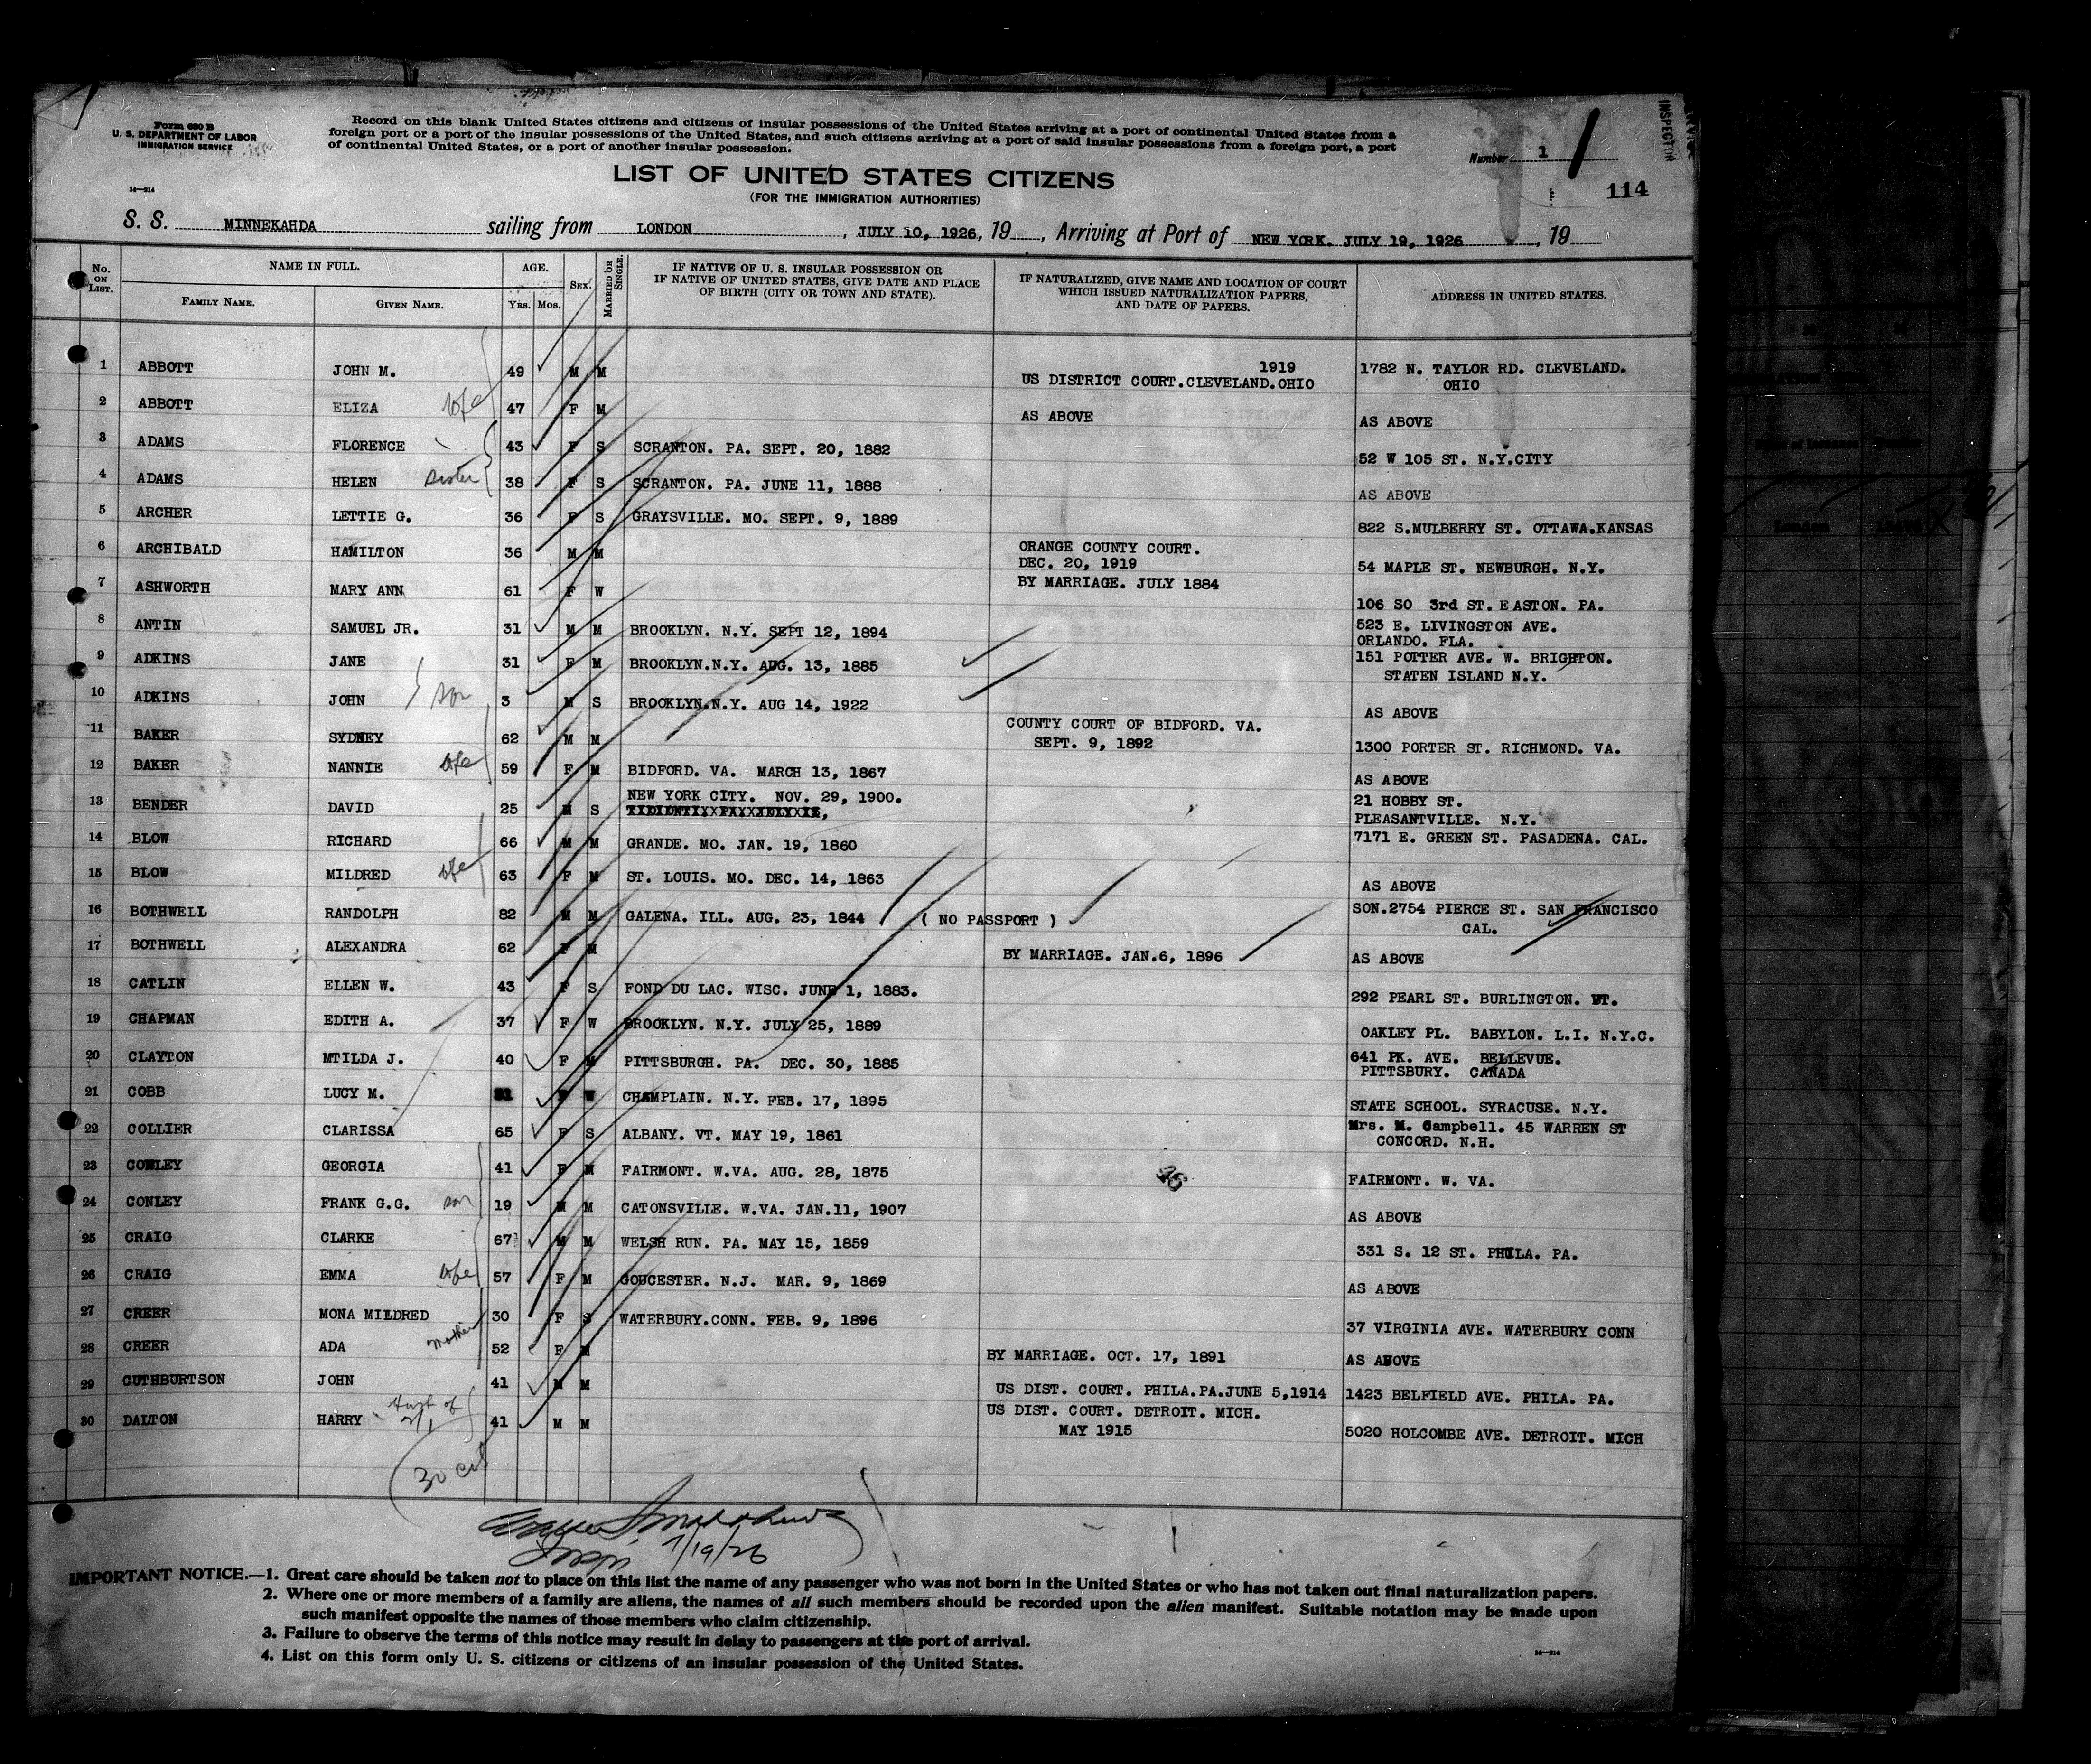 Form 630 B
U. S. DEPARTMENT OF LABOR
IMMIGRATION SERVICE
Record on this blank United States citizens and citizens of insular possessions of the United States arriving at a port of continental United States from a
foreign port or a port of the insular possessions of the United States, and such citizens arriving at a port of said insular possessions from a foreign port, a port
of continental United States, or a port of another insular possession.
INSPECTOR
Number 1
14—214
LIST OF UNITED STATES CITIZENS
(FOR THE IMMIGRATION AUTHORITIES)
114
S. S. MINNEKAHDA sailing from LONDON, JULY 10, 1926, 19, Arriving at Port of NEW YORK. JULY 19, 1926, 19
No. ON LIST. NAME IN FULL. AGE. SEX. MARRIED OR SINGLE. IF NATIVE OF U. S. INSULAR POSSESSION OR IF NATIVE OF UNITED STATES, GIVE DATE AND PLACE OF BIRTH (CITY OR TOWN AND STATE). IF NATURALIZED, GIVE NAME AND LOCATION OF COURT WHICH ISSUED NATURALIZATION PAPERS, AND DATE OF PAPERS. ADDRESS IN UNITED STATES.
FAMILY NAME. GIVEN NAME. YRS. MOS.
1 ABBOTT JOHN M. 49 M M 1919 US DISTRICT COURT.CLEVELAND.OHIO 1782 N. TAYLOR RD. CLEVELAND. OHIO
2 ABBOTT ELIZA wife 47 F M AS ABOVE AS ABOVE
3 ADAMS FLORENCE 43 F S SCRANTON. PA. SEPT. 20, 1882 52 W 105 ST. N.Y.CITY
4 ADAMS HELEN sister 38 F S SCRANTON. PA. JUNE 11, 1888 AS ABOVE
5 ARCHER LETTIE G. 36 F S GRAYSVILLE. MO. SEPT. 9, 1889 822 S.MULBERRY ST. OTTAWA.KANSAS
6 ARCHIBALD HAMILTON 36 M M ORANGE COUNTY COURT. DEC. 20, 1919 54 MAPLE ST. NEWBURGH. N.Y.
7 ASHWORTH MARY ANN 61 F W BY MARRIAGE. JULY 1884 106 SO 3rd ST. EASTON. PA.
8 ANTIN SAMUEL JR. 31 M M BROOKLYN. N.Y. SEPT 12, 1894 523 E. LIVINGSTON AVE. ORLANDO. FLA.
9 ADKINS JANE 31 F M BROOKLYN.N.Y. AUG. 13, 1885 151 POTTER AVE. W. BRIGHTON. STATEN ISLAND N.Y.
10 ADKINS JOHN son 3 M S BROOKLYN.N.Y. AUG 14, 1922 AS ABOVE
11 BAKER SYDNEY 62 M M COUNTY COURT OF BIDFORD. VA. SEPT. 9, 1892 1300 PORTER ST. RICHMOND. VA.
12 BAKER NANNIE wife 59 F M BIDFORD. VA. MARCH 13, 1867 AS ABOVE
13 BENDER DAVID 25 M S NEW YORK CITY. NOV. 29, 1900. 21 HOBBY ST. PLEASANTVILLE. N.Y.
14 BLOW RICHARD 66 M M GRANDE. MO. JAN. 19, 1860 7171 E. GREEN ST. PASADENA. CAL.
15 BLOW MILDRED wife 63 F M ST. LOUIS. MO. DEC. 14, 1863 AS ABOVE
16 BOTHWELL RANDOLPH 82 M M GALENA. ILL. AUG. 23, 1844 ( NO PASSPORT ) SON.2754 PIERCE ST. SAN FRANCISCO CAL.
17 BOTHWELL ALEXANDRA 62 F M BY MARRIAGE. JAN.6, 1896 AS ABOVE
18 CATLIN ELLEN W. 43 F S FOND DU LAC. WISC. JUNE 1, 1883. 292 PEARL ST. BURLINGTON. VT.
19 CHAPMAN EDITH A. 37 F W BROOKLYN. N.Y. JULY 25, 1889 OAKLEY PL. BABYLON. L.I. N.Y.C.
20 CLAYTON MTILDA J. 40 F M PITTSBURGH. PA. DEC. 30, 1885 641 PK. AVE. BELLEVUE. PITTSBURY. CANADA
21 COBB LUCY M. 31 F W CHAMPLAIN. N.Y. FEB. 17, 1895 STATE SCHOOL. SYRACUSE. N.Y.
22 COLLIER CLARISSA 65 F S ALBANY. VT. MAY 19, 1861 Mrs. M. Campbell. 45 WARREN ST CONCORD. N.H.
23 CONLEY GEORGIA 41 F M FAIRMONT. W.VA. AUG. 28, 1875 FAIRMONT. W. VA.
24 CONLEY FRANK G.G. son 19 M M CATONSVILLE. W.VA. JAN.11, 1907 AS ABOVE
25 CRAIG CLARKE 67 M M WELSH RUN. PA. MAY 15, 1859 331 S. 12 ST. PHILA. PA.
26 CRAIG EMMA wife 57 F M GOUCESTER. N.J. MAR. 9, 1869 AS ABOVE
27 CREER MONA MILDRED 30 F S WATERBURY.CONN. FEB. 9, 1896 37 VIRGINIA AVE. WATERBURY CONN
28 CREER ADA mother 52 F M BY MARRIAGE. OCT. 17, 1891 AS ABOVE
29 CUTHBURTSON JOHN 41 M M US DIST. COURT. PHILA.PA.JUNE 5,1914 1423 BELFIELD AVE. PHILA. PA.
30 DALTON HARRY 41 M M US DIST. COURT. DETROIT. MICH. MAY 1915 5020 HOLCOMBE AVE. DETROIT. MICH
30 cit
Insp. 7/19/26
IMPORTANT NOTICE.—1. Great care should be taken not to place on this list the name of any passenger who was not born in the United States or who has not taken out final naturalization papers.
2. Where one or more members of a family are aliens, the names of all such members should be recorded upon the alien manifest. Suitable notation may be made upon
such manifest opposite the names of those members who claim citizenship.
3. Failure to observe the terms of this notice may result in delay to passengers at the port of arrival.
4. List on this form only U. S. citizens or citizens of an insular possession of the United States.
14—214